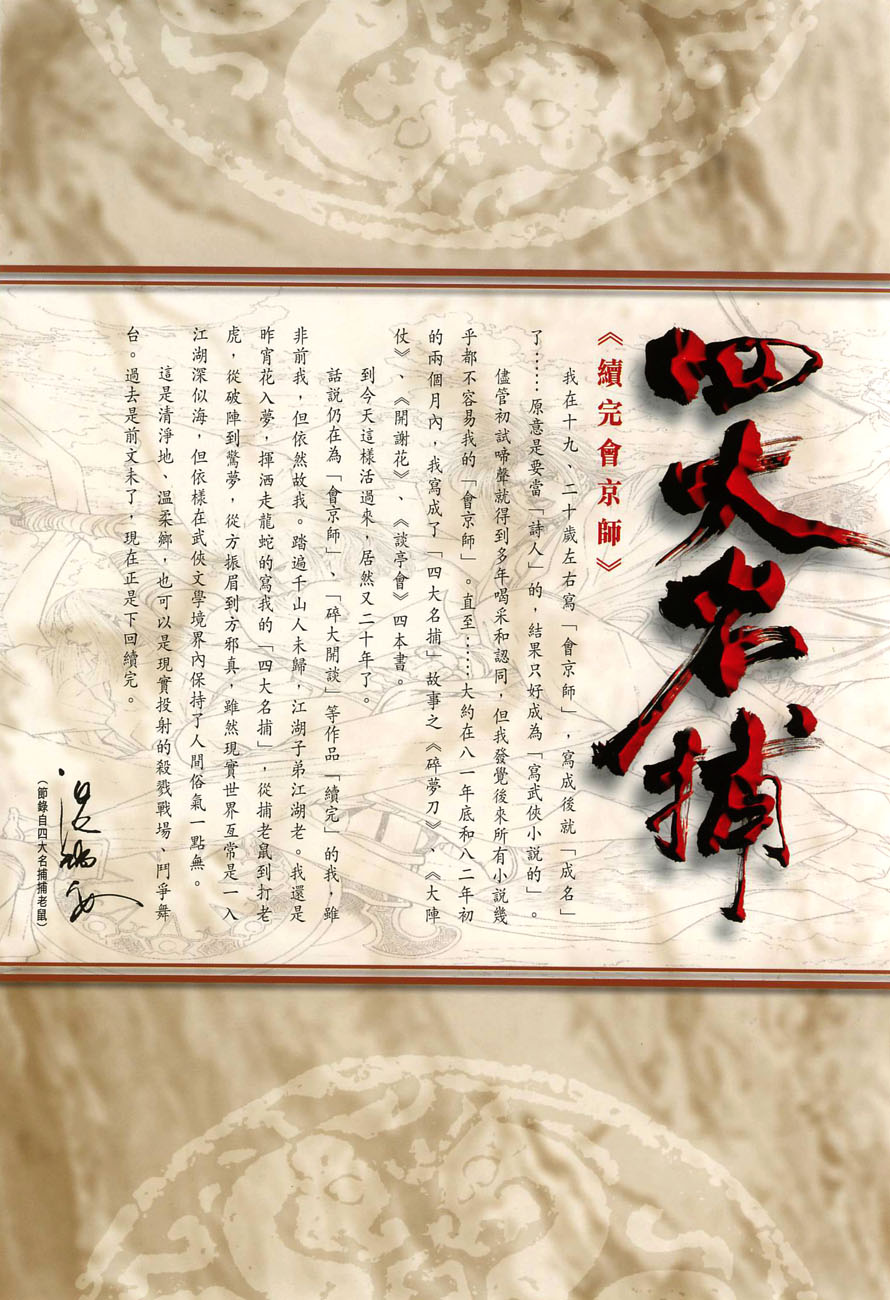 四大名捕
《續完會京師》
我在十九、二十歲左右寫「會京師」，寫成後就「成名」
了……原意是要當「詩人」的，結果只好成為「寫武俠小說的」。
儘管初試啼聲就得到多年喝采和認同，但我發覺後來所有小說幾
乎都不容易我的「會京師」。直至……大約在八一年底和八二年初
的兩個月內，我寫成了「四大名捕」故事之《碎夢刀》、《大陣
仗》、《開謝花》、《談亭會》四本書。
到今天這樣活過來，居然又二十年了。
話說仍在為「會京師」、「碎大開談」等作品「續完」的我，雖
非前我，但依然故我。踏遍千山人未歸，江湖子弟江湖老。我還是
昨宵花入夢，揮洒走龍蛇的寫我的「四大名捕」，從捕老鼠到打老
虎，從破陣到驚夢，從方振眉到方邪真，雖然現實世界亙常是一入
江湖深似海，但依樣在武俠文學境界內保持了人間俗氣一點無。
這是清淨地、溫柔鄉，也可以是現實投射的殺戮戰場、鬥爭舞
台。過去是前文未了，現在正是下回續完。
溫瑞安
（節錄自四大名捕捕老鼠）